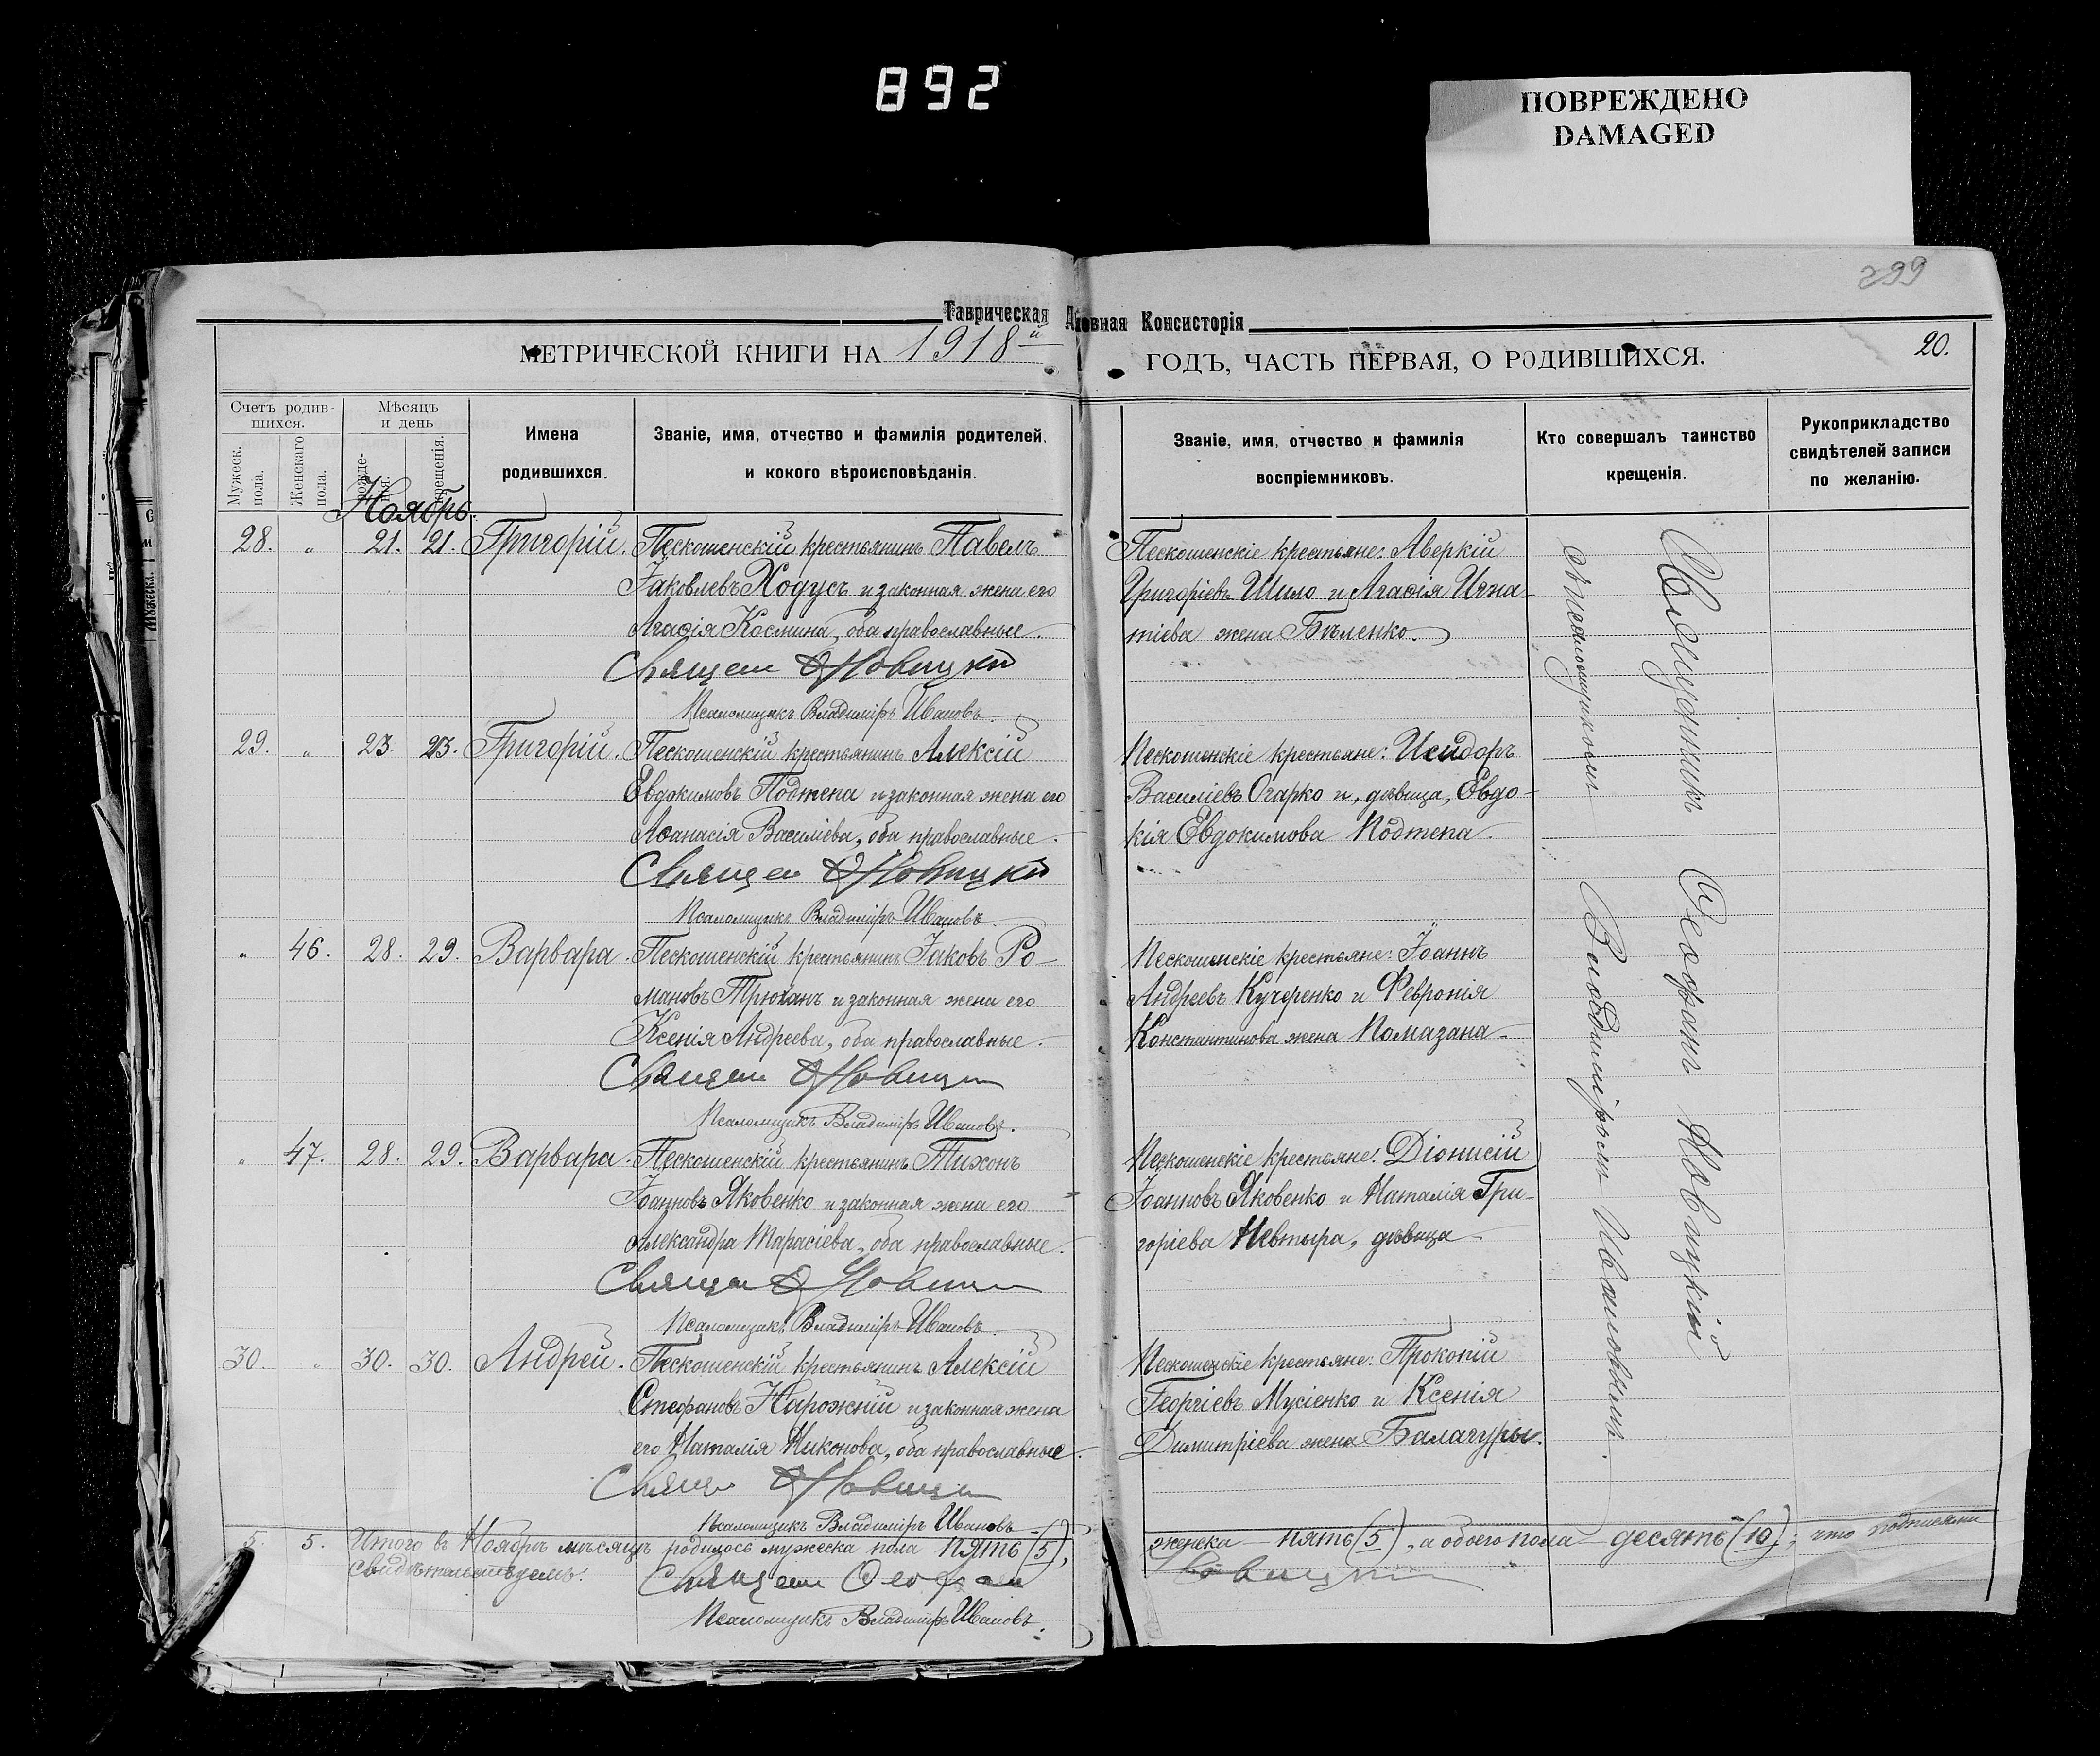 892
ПОВРЕЖДЕНО
DAMAGED
299
Таврическая Духовная Консисторія
МЕТРИЧЕСКОЙ КНИГИ НА 1918й ГОДЪ, ЧАСТЬ ПЕРВАЯ, О РОДИВШИХСЯ.
20.
Счетъ родив-
шихся.
Мужеск. пола.
Женскаго пола.
Мѣсяцъ
и день
рожде-
нія.
крещенія.
Имена
родившихся.
Званіе, имя, отчество и фамилія родителей,
и кокого вѣроисповѣданія.
Званіе, имя, отчество и фамилія
воспріемниковъ.
Кто совершалъ таинство
крещенія.
Рукоприкладство
свидѣтелей записи
по желанію.
Ноябрь.
28. „ 21. 21. Григорій. Пескошенскій крестьянинъ Павелъ
Іаковлевъ Ходусъ и законная жена его
Агаѳія Космина, оба православные.
Священ Ѳ Новицкій
Псаломщикъ Владиміръ Ивановъ.
Пескошенскіе крестьяне: Аверкій
Григоріевъ Шило и Агаѳія Игна-
тіева жена Бѣленко.
29. „ 23. 23. Григорій. Пескошенскій крестьянинъ Алексій
Евдокимовъ Подтепа и законная жена его
Аѳанасія Василіева, оба православные.
Священ Ѳ Новицкій
Псаломщикъ Владиміръ Ивановъ.
Пескошенскіе крестьяне: Исидоръ
Василіевъ Огарко и, дѣвица, Евдо-
кія Евдокимова Подтепа.
„ 46. 28. 29. Варвара. Пескошенскій крестьянинъ Іаковъ Ро-
мановъ Трюханъ и законная жена его
Ксенія Андреева, оба православные.
Священ Ѳ Новицкій
Псаломщикъ Владиміръ Ивановъ.
Пескошенскіе крестьяне: Іоаннъ
Андреевъ Кучеренко и Февронія
Константинова жена Помазана
„ 47. 28. 29. Варвара. Пескошенскій крестьянинъ Тихонъ
Іоанновъ Яковенко и законная жена его
Александра Тарасіева, оба православные.
Священ Ѳ Новицкій
Псаломщикъ Владиміръ Ивановъ.
Пескошенскіе крестьяне: Діонисій
Іоанновъ Яковенко и Наталія Гри-
горіева Невтыра, дѣвица
30. „ 30. 30. Андрей. Пескошенскій крестьянинъ Алексій
Стефановъ Нарожній и законная жена
его Наталія Никонова, оба православные.
Священ Ѳ Новицкій
Псаломщикъ Владиміръ Ивановъ
Пескошенскіе крестьяне: Прокопій
Георгіевъ Мусіенко и Ксенія
Димитріева жена Балагуры.
Священникъ Ѳеофанъ Новицкій
съ псаломщикомъ Владиміромъ Ивановымъ.
5. 5. Итого въ Ноябрѣ мѣсяцѣ родилось мужеска пола пять (5), женска пять (5), а обоего пола десять (10), что подписями
свидѣтельствуемъ. Священ Ѳеофан Новицкій
Псаломщикъ Владиміръ Ивановъ.